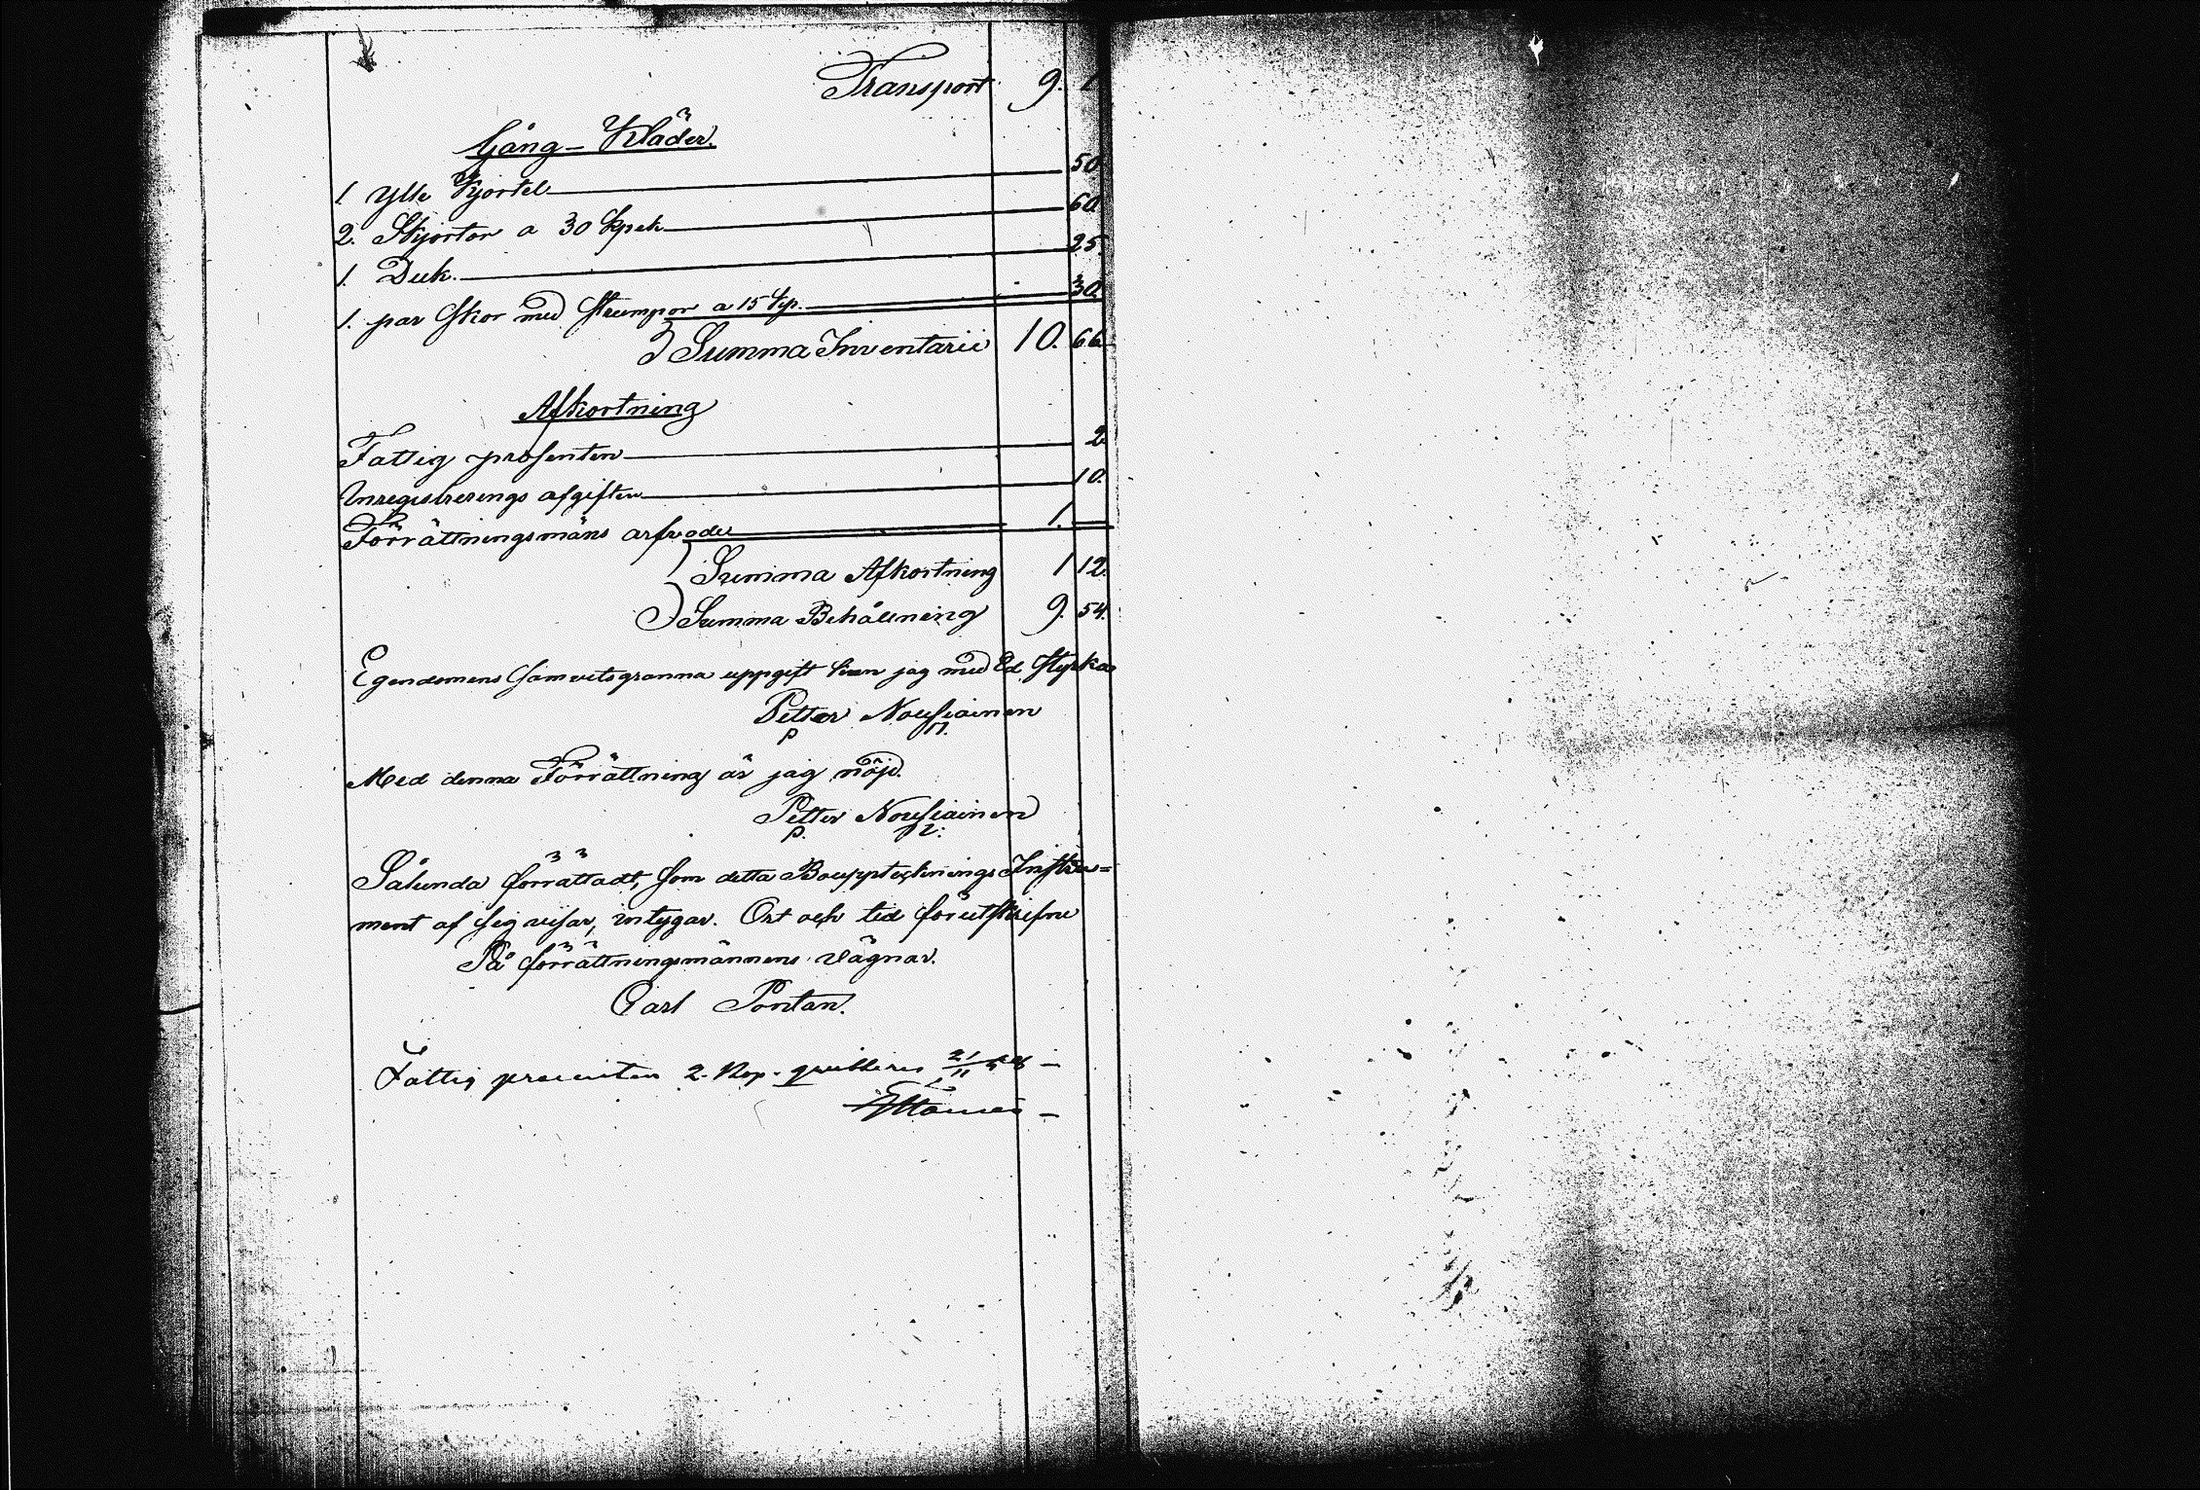 Transport 9. 1
Gång-Kläder.
1. Ylle Kjortel 50
2. Skjortor a 30 Kpek 60
1. Duk. 25.
1. par Skor med Strumpor a 15 Kp. 30.
Summa Inventarii 10. 66.
Afkortning
Fattig prosenten 2
Inregistrerings afgiften 10.
Förrättningsmäns arfvode 1.
Summa Afkortning 1 12.
Summa Behållning 9. 54.
Egendomens Samvetsgranna uppgift kan jag med Ed Styrka
Petter Nousiainen
Med denna Förrättning är jag nöjd.
Petter Nousiainen
Sålunda förrättadt, Som detta Boupptecknings Instru=
ment af Sig visar, intygar. Ort och tid förutskrifne
På förrättningsmännens vägnar.
Carl Pontan.
Fattig procenten 2. Kop. quitteras 21/11